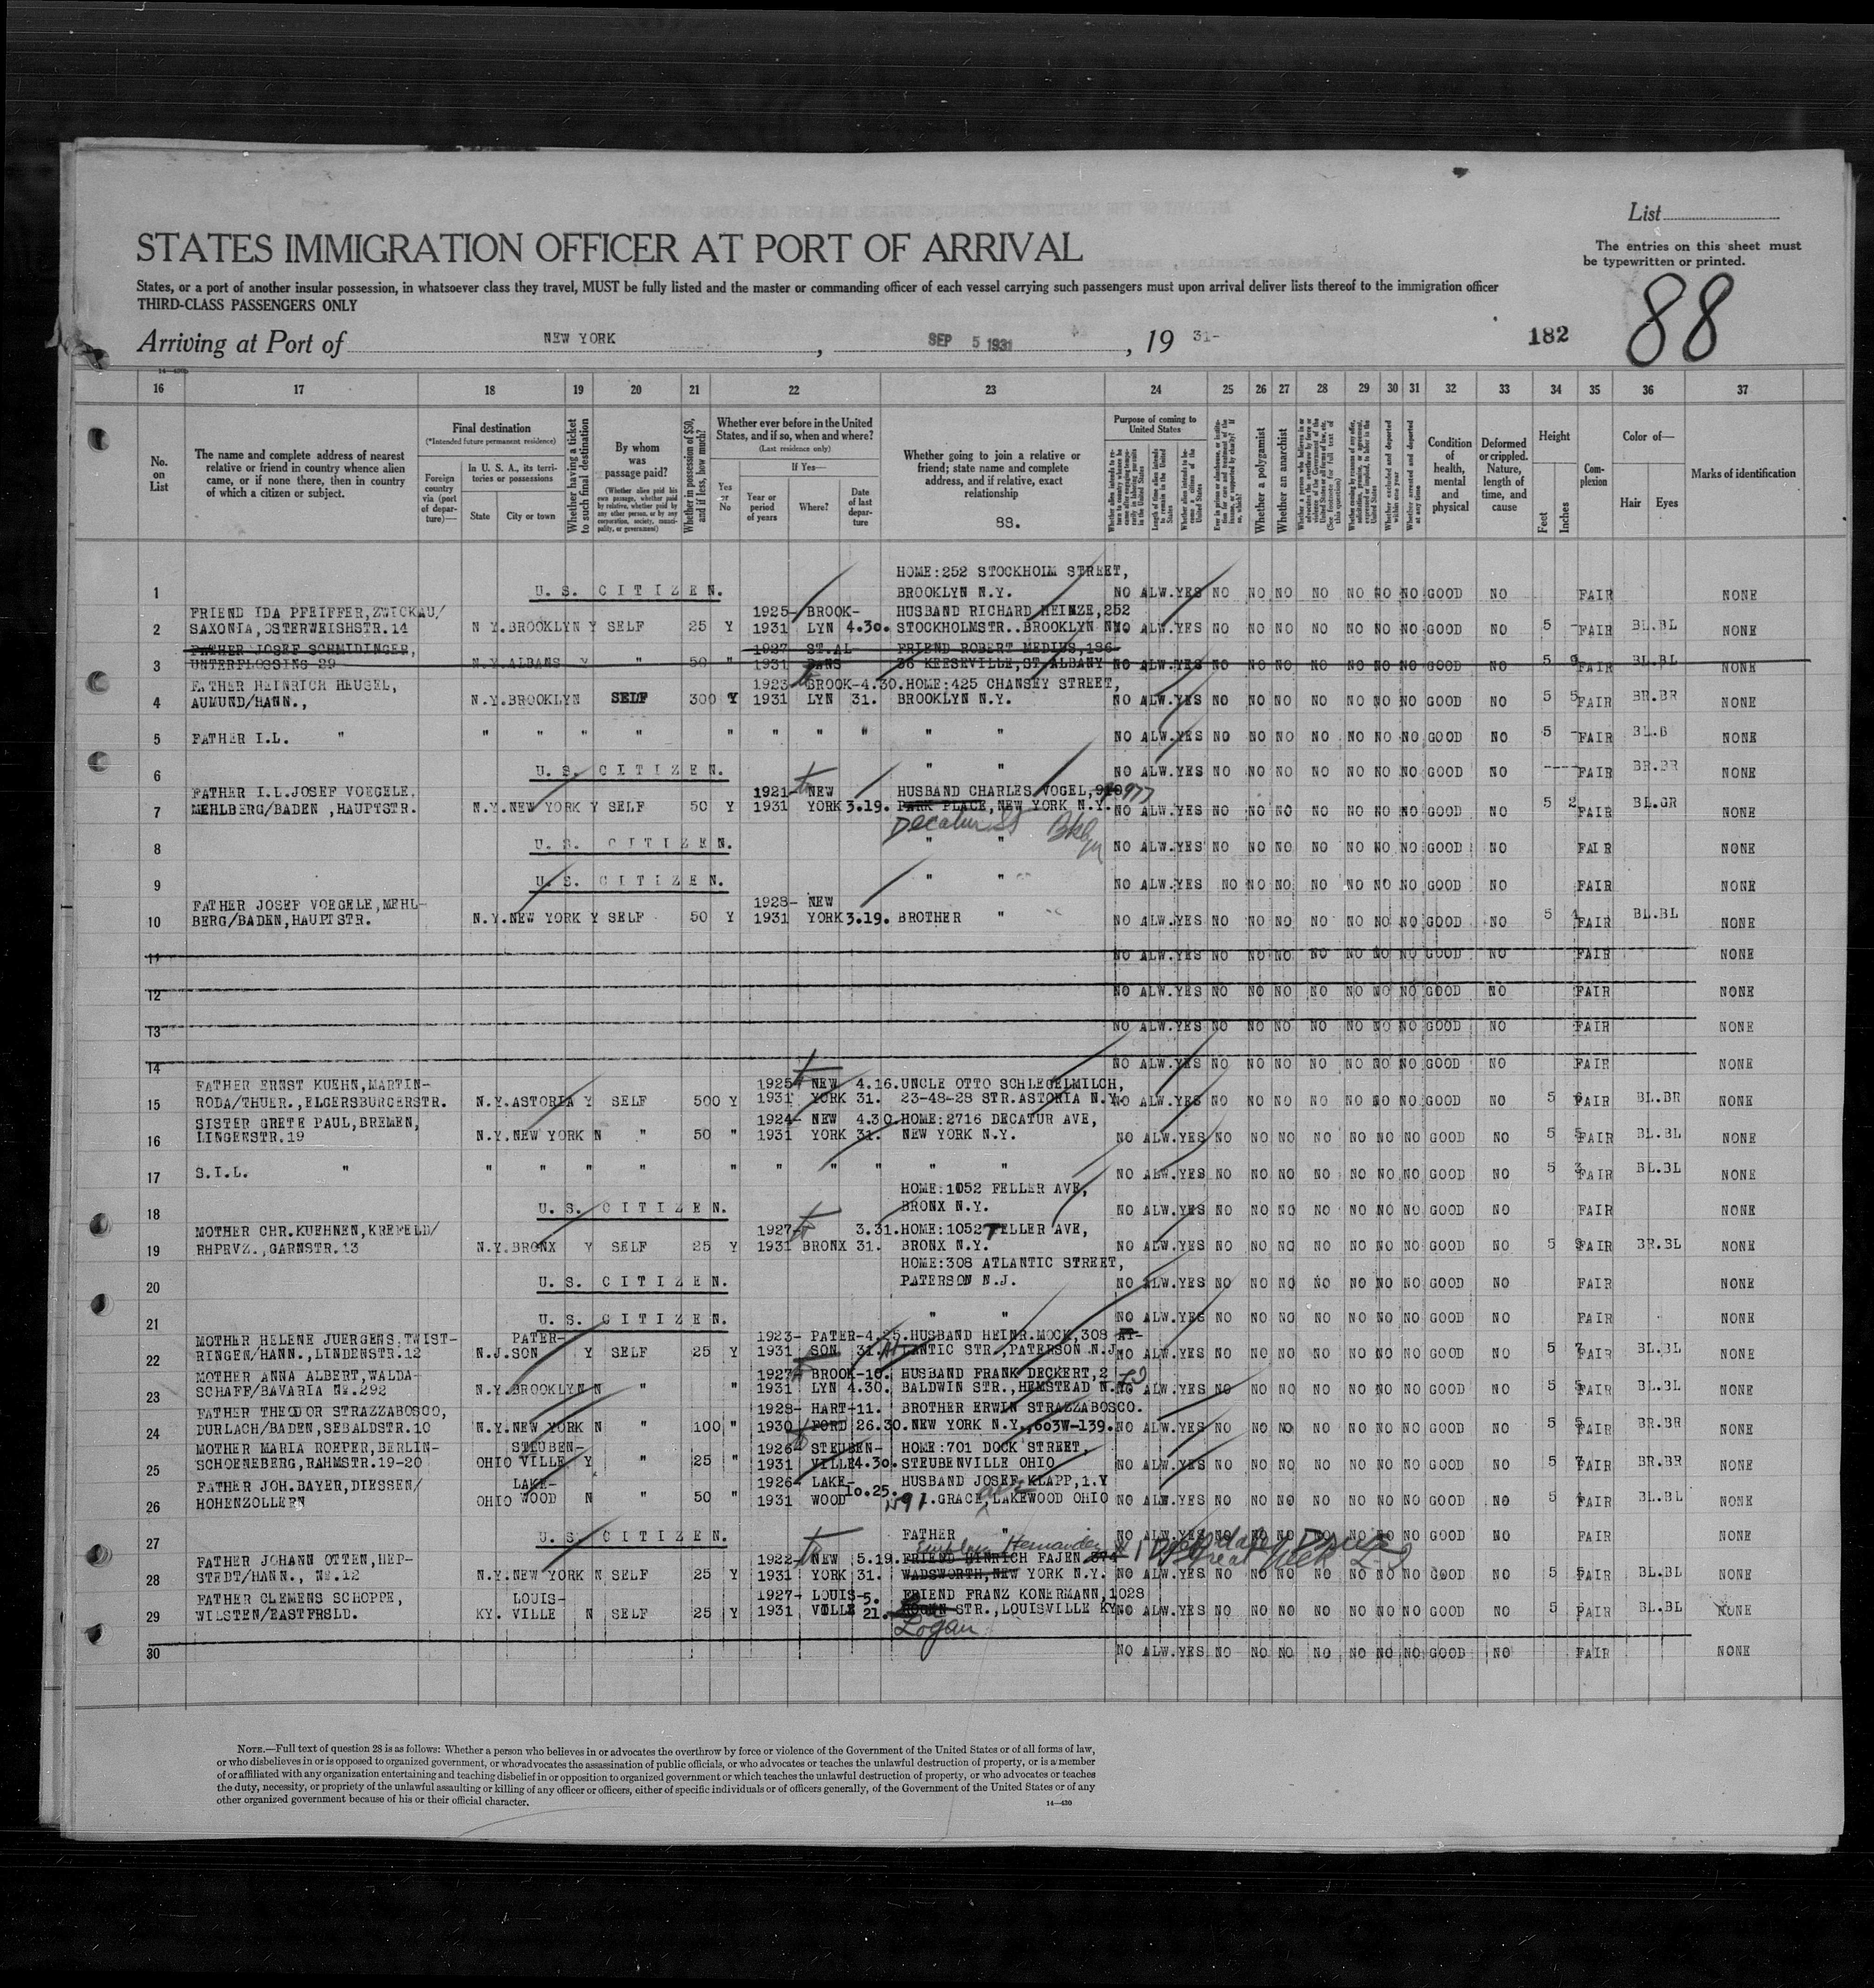 List
STATES IMMIGRATION OFFICER AT PORT OF ARRIVAL
The entries on this sheet must
be typewritten or printed.
States, or a port of another insular possession, in whatsoever class they travel, MUST be fully listed and the master or commanding officer of each vessel carrying such passengers must upon arrival deliver lists thereof to the immigration officer
THIRD-CLASS PASSENGERS ONLY
88
Arriving at Port of NEW YORK, SEP 5 1931, 19 31- 182
16 17 18 19 20 21 22 23 24 25 26 27 28 29 30 31 32 33 34 35 36 37
No. on List
The name and complete address of nearest relative or friend in country whence alien came, or if none there, then in country of which a citizen or subject.
Final destination
(*Intended future permanent residence)
Foreign country via (port of departure)—
In U. S. A., its territories or possessions
State City or town
Whether having a ticket to such final destination
By whom was passage paid?
(Whether alien paid his own passage, whether paid by relative, whether paid by any other person, or by any corporation, society, municipality, or government)
Whether in possession of $50, and if less, how much?
Whether ever before in the United States, and if so, when and where?
(Last residence only)
Yes or No
If Yes—
Year or period of years
Where?
Date of last departure
Whether going to join a relative or friend; state name and complete address, and if relative, exact relationship
88.
Purpose of coming to United States
Length of time alien intends to remain in the United States
Whether alien intends to become a citizen of the United States
Whether a polygamist
Whether an anarchist
Whether excluded and deported within one year
Whether arrested and deported at any time
Condition of health, mental and physical
Deformed or crippled. Nature, length of time, and cause
Height
Feet Inches
Complexion
Color of—
Hair Eyes
Marks of identification
HOME:252 STOCKHOIM STREET,
1 U. S. CITIZEN. BROOKLYN N.Y. NO ALW.YES NO NO NO NO NO NO NO GOOD NO FAIR NONE
FRIEND IDA PFEIFFER,ZWICKAU/ 1925- BROOK- HUSBAND RICHARD HEINZE,252
2 SAXONIA,OSTERWEISHSTR.14 N Y.BROOKLYN Y SELF 25 Y 1931 LYN 4.30. STOCKHOLMSTR..BROOKLYN NY NO ALW.YES NO NO NO NO NO NO NO GOOD NO 5 - FAIR BL.BL NONE
FATHER JOSEF SCHMIDINGER, 1927- ST.AL- FRIEND ROBERT MEDIUS,186-
3 UNTERFLOSSING 29 N.Y.ALBANS Y " 50 " 1931 BANS 36 KEESEVILLE,ST,ALBANY NO ALW.YES NO NO NO NO NO NO NO GOOD NO 5 9 FAIR BL.BL NONE
FATHER HEINRICH HEUSEL, 1923- BROOK-4.30.HOME:425 CHANSEY STREET,
4 AUMUND/HANN., N.Y.BROOKLYN SELF 300 Y 1931 LYN 31. BROOKLYN N.Y. NO ALW.YES NO NO NO NO NO NO NO GOOD NO 5 5 FAIR BR.BR NONE
5 FATHER I.L. " " " " " " " " " " " NO ALW.YES NO NO NO NO NO NO NO GOOD NO 5 - FAIR BL.B NONE
6 U. S. CITIZEN. " " NO ALW.YES NO NO NO NO NO NO NO GOOD NO ---- FAIR BR.BR NONE
FATHER I.L.JOSEF VOEGELE, 1921- NEW HUSBAND CHARLES VOGEL,910 977
7 MEHLBERG/BADEN ,HAUPTSTR. N.Y.NEW YORK Y SELF 50 Y 1931 YORK 3.19. PARK PLACE,NEW YORK N.Y. NO ALW.YES NO NO NO NO NO NO NO GOOD NO 5 2 FAIR BL.GR NONE
Decatur St Bklyn
8 U. S. CITIZEN. " " NO ALW.YES NO NO NO NO NO NO NO GOOD NO FAIR NONE
9 U. S. CITIZEN. " " NO ALW.YES NO NO NO NO NO NO NO GOOD NO FAIR NONE
FATHER JOSEF VOEGELE,MEHL- 1928- NEW
10 BERG/BADEN,HAUPTSTR. N.Y.NEW YORK Y SELF 50 Y 1931 YORK 3.19. BROTHER " NO ALW.YES NO NO NO NO NO NO NO GOOD NO 5 4 FAIR BL.BL NONE
11 NO ALW.YES NO NO NO NO NO NO NO GOOD NO FAIR NONE
12 NO ALW.YES NO NO NO NO NO NO NO GOOD NO FAIR NONE
13 NO ALW.YES NO NO NO NO NO NO NO GOOD NO FAIR NONE
14 NO ALW.YES NO NO NO NO NO NO NO GOOD NO FAIR NONE
FATHER ERNST KUEHN,MARTIN- 1925 NEW 4.16.UNCLE OTTO SCHLEGELMILCH,
15 RODA/THUER.,ELGERSBURGERSTR. N.Y.ASTORIA Y SELF 500 Y 1931 YORK 31. 23-48-28 STR.ASTORIA N.Y. NO ALW.YES NO NO NO NO NO NO NO GOOD NO 5 6 FAIR BL.BR NONE
SISTER GRETE PAUL,BREMEN, 1924- NEW 4.30.HOME:2716 DECATUR AVE,
16 LINGENSTR.19 N.Y.NEW YORK N " 50 " 1931 YORK 31. NEW YORK N.Y. NO ALW.YES NO NO NO NO NO NO NO GOOD NO 5 5 FAIR BL.BL NONE
17 S.I.L. " " " " " " " " " " " NO ALW.YES NO NO NO NO NO NO NO GOOD NO 5 3 FAIR BL.BL NONE
HOME:1052 FELLER AVE,
18 U. S. CITIZEN. BRONX N.Y. NO ALW.YES NO NO NO NO NO NO NO GOOD NO FAIR NONE
MOTHER CHR.KUEHNEN,KREFELD/ 1927- 3.31.HOME:1052 TELLER AVE,
19 RHPRVZ.,GARNSTR.13 N.Y.BRONX Y SELF 25 Y 1931 BRONX 31. BRONX N.Y. NO ALW.YES NO NO NO NO NO NO NO GOOD NO 5 FAIR BR.BL NONE
HOME:308 ATLANTIC STREET,
20 U. S. CITIZEN. PATERSON N.J. NO ALW.YES NO NO NO NO NO NO NO GOOD NO FAIR NONE
21 U. S. CITIZEN. " " NO ALW.YES NO NO NO NO NO NO NO GOOD NO FAIR NONE
MOTHER HELENE JUERGENS.TWIST- PATER- 1923- PATER-4.25.HUSBAND HEINR.MOCK,308 AT-
22 RINGEN/HANN.,LINDENSTR.12 N.J.SON Y SELF 25 Y 1931 SON 31. ATLANTIC STR.,PATERSON N.J. NO ALW.YES NO NO NO NO NO NO NO GOOD NO 5 7 FAIR BL.BL NONE
MOTHER ANNA ALBERT,WALDA- 1927 BROOK-10. HUSBAND FRANK DECKERT,2
23 SCHAFF/BAVARIA No.292 N.Y.BROOKLYN N " " 1931 LYN 4.30. BALDWIN STR.,HEMSTEAD N. NO ALW.YES NO NO NO NO NO NO NO GOOD NO 5 5 FAIR BL.BL NONE
FATHER THEODOR STRAZZABOSCO, 1928- HART-11. BROTHER ERWIN STRAZZABOSCO.
24 DURLACH/BADEN,SEBALDSTR.10 N.Y.NEW YORK N " 100 " 1930 FORD 26.30. NEW YORK N.Y.,603W-139. NO ALW.YES NO NO NO NO NO NO NO GOOD NO 5 5 FAIR BR.BR NONE
MOTHER MARIA ROEPER,BERLIN- STEUBEN- 1926 STEUBEN- HOME:701 DOCK STREET,
25 SCHOENEBERG,RAHMSTR.19-20 OHIO VILLE Y " 25 " 1931 VILLE4.30. STEUBENVILLE OHIO NO ALW.YES NO NO NO NO NO NO NO GOOD NO 5 7 FAIR BR.BR NONE
FATHER JOH.BAYER,DIESSEN/ LAKE- 1926- LAKE- HUSBAND JOSEF KLAPP,1.Y
26 HOHENZOLLERN OHIO WOOD N " 50 " 1931 WOOD 10.25. 1591.GRACE ave,LAKEWOOD OHIO NO ALW.YES NO NO NO NO NO NO NO GOOD NO 5 4 FAIR BL.BL NONE
27 U. S. CITIZEN. FATHER " NO ALW.YES NO NO NO NO NO NO NO GOOD NO FAIR NONE
Drive
FATHER JOHANN OTTEN,HEP- 1922- NEW 5.19.FRIEND HINRICH FAJEN 374 Great Neck L-I
28 STEDT/HANN., No.12 N.Y.NEW YORK N SELF 25 Y 1931 YORK 31. WADSWORTH,NEW YORK N.Y. NO ALW.YES NO NO NO NO NO NO NO GOOD NO 5 5 FAIR BL.BL NONE
FATHER CLEMENS SCHOPPE, LOUIS- 1927- LOUIS-5. FRIEND FRANZ KONERMANN,1028
29 WILSTEN/EASTFRSLD. KY. VILLE N SELF 25 Y 1931 VILLE 21. STR.,LOUISVILLE KY NO ALW.YES NO NO NO NO NO NO NO GOOD NO 5 FAIR BL.BL NONE
Logan
30 NO ALW.YES NO NO NO NO NO NO NO GOOD NO FAIR NONE
NOTE.—Full text of question 28 is as follows: Whether a person who believes in or advocates the overthrow by force or violence of the Government of the United States or of all forms of law,
or who disbelieves in or is opposed to organized government, or who advocates the assassination of public officials, or who advocates or teaches the unlawful destruction of property, or is a member
of or affiliated with any organization entertaining and teaching disbelief in or opposition to organized government or which teaches the unlawful destruction of property, or who advocates or teaches
the duty, necessity, or propriety of the unlawful assaulting or killing of any officer or officers, either of specific individuals or of officers generally, of the Government of the United States or of any
other organized government because of his or their official character.
14—430